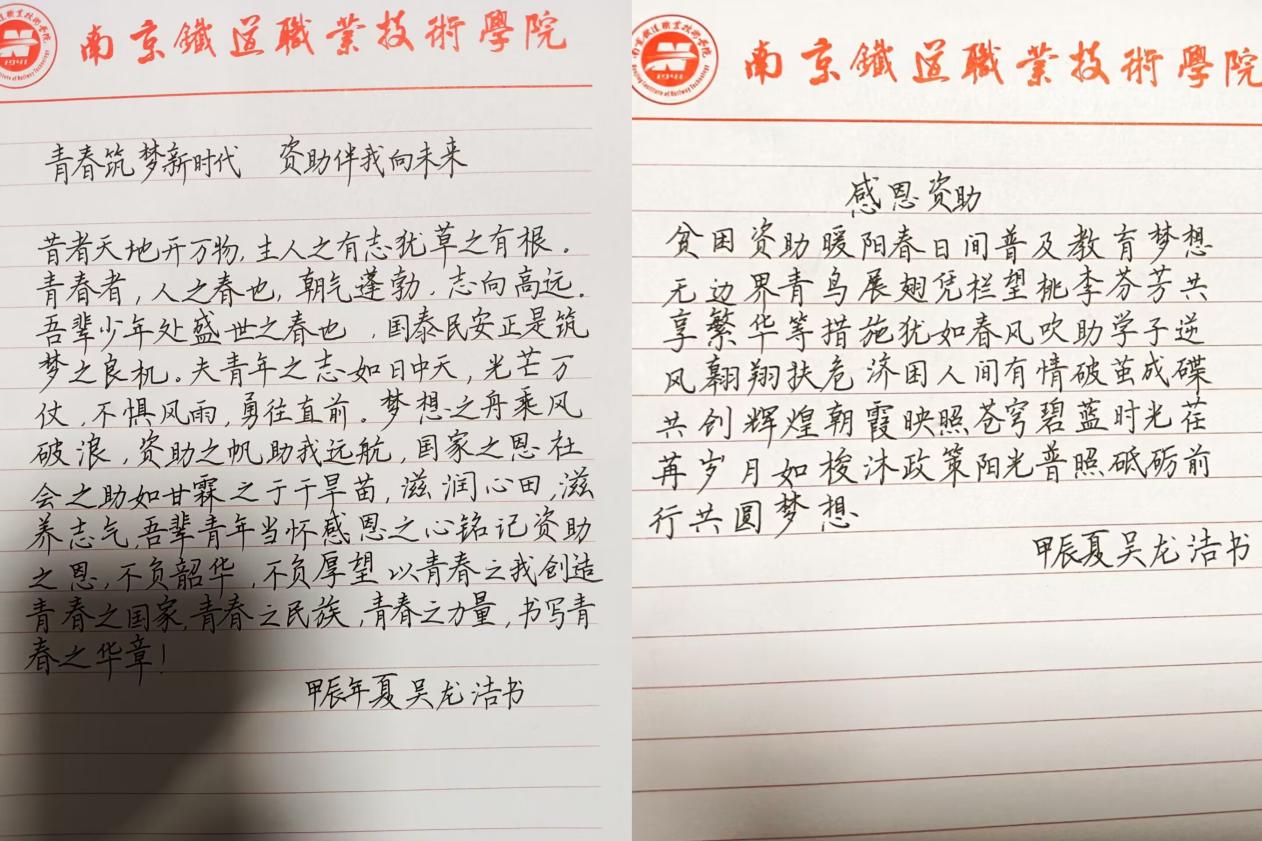 南京鐵道職業技術學院
1941
青春筑梦新时代 资助伴我向未来
昔者天地开万物,主人之有志犹草之有根。
青春者,人之春也,朝气蓬勃,志向高远。
吾辈少年处盛世之春也,国泰民安正是筑
梦之良机。夫青年之志如日中天,光芒万
仗,不惧风雨,勇往直前。梦想之舟乘风
破浪,资助之帆助我远航,国家之恩社
会之助如甘霖之于干旱苗,滋润心田,滋
养志气,吾辈青年当怀感恩之心铭记资助
之恩,不负韶华,不负厚望以青春之我创造
青春之国家,青春之民族,青春之力量,书写青
春之华章!
甲辰年夏吴龙洁书
南京鐵道職業技術學院
南京鐵道職業技術學院
1941
Nanjing Institute of Railway Technology
感恩资助
贫困资助暖阳春日间普及教育梦想
无边界青鸟展翅凭栏望桃李芬芳共
享繁华等措施犹如春风吹助学子逆
风翱翔扶危济困人间有情破茧成碟
共创辉煌朝霞映照苍穹碧蓝时光荏
苒岁月如梭沐政策阳光普照砥砺前
行共圆梦想
甲辰夏吴龙洁书